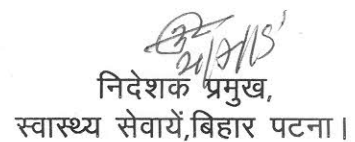 निदेशक प्रमुख,
स्वास्थ्य सेवायें,बिहार पटना।